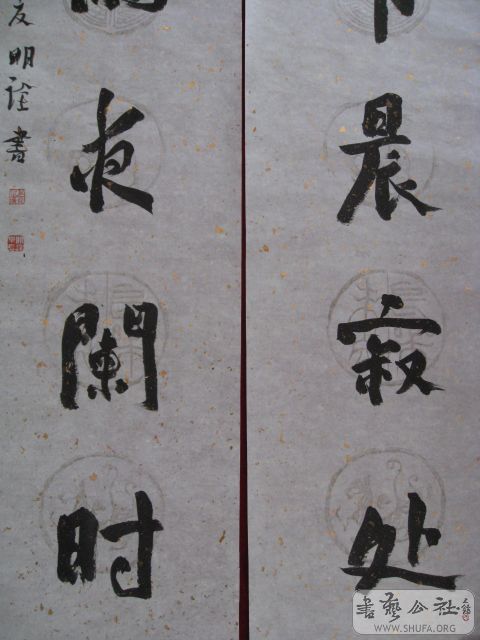 晨寂处
夜闌时
友明詮書
書藝公社
WWW.SHUFA.ORG